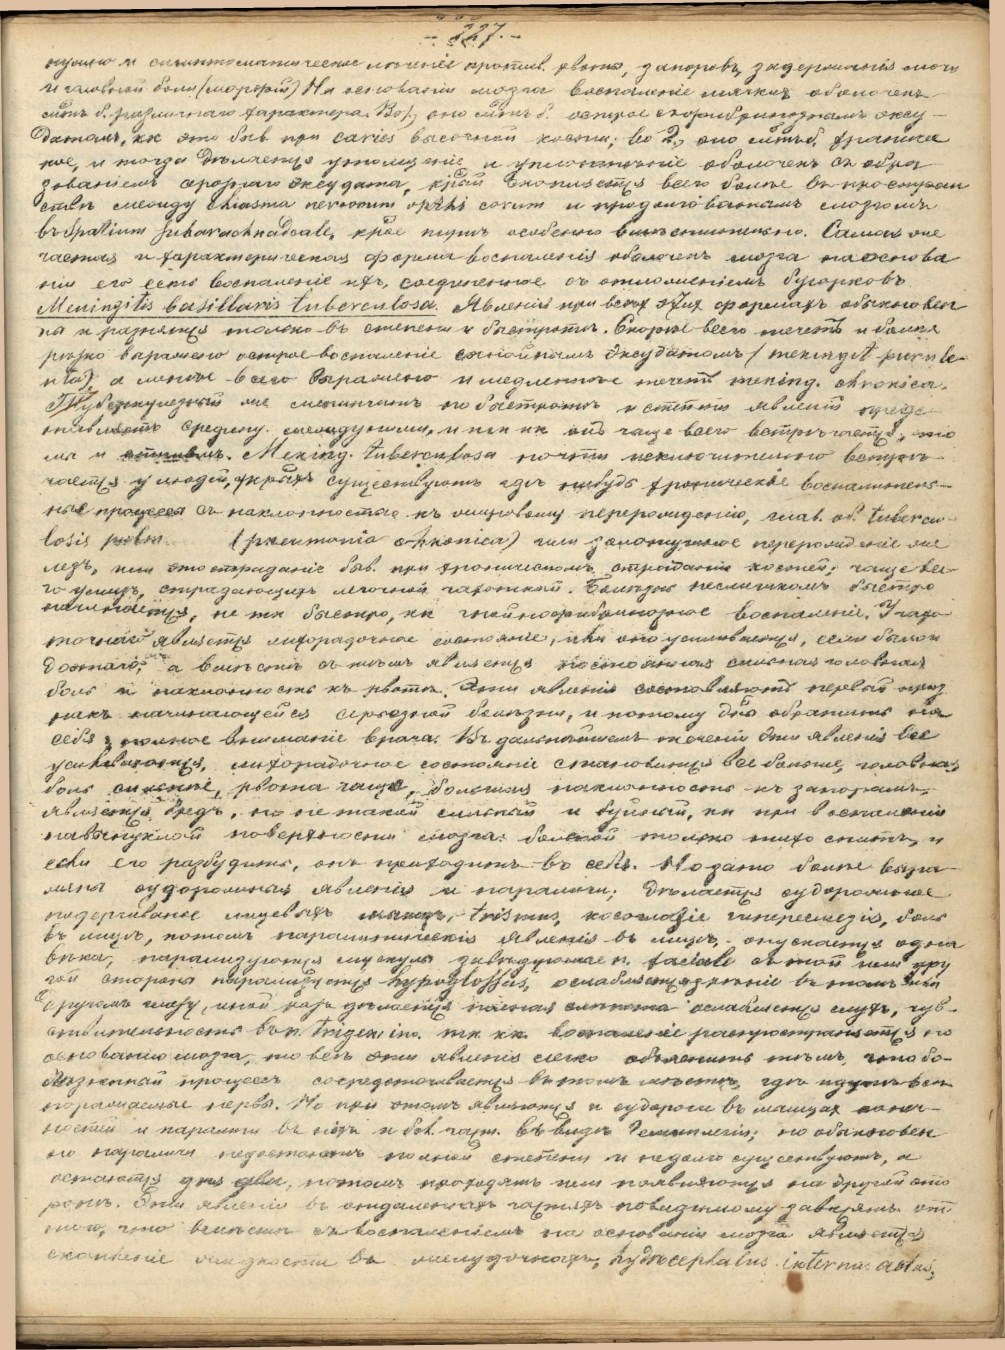 - 227. -
нужно и симптоматическое леченіе против. рвоты, запоровъ, задержанія мочи
и головной боли (морфій) На основаніи мозга воспаленіе мягкихъ оболочекъ
м. б. различнаго характера. Во 1) оно б. острое съ фибринознымъ эксу-
датомъ, кк это быв при caries височной кости; во 2, оно б. хрониче
ное, и тогда дѣлается утолщеніе и уплотненіе оболочекъ съ обра
зованіемъ эксудата, кр҃ый скопляется всего болѣе въ простран
ствѣ между chiasma nervorum opthi corum и продолговатымъ мозгомъ
въ Spatium subarachnoideale, кр҃ое тутъ особенно вмѣстительно. Самая же
частая и характерическая форма воспаленія оболочекъ мозга на основа
ніи его есть воспаленіе ихъ, соединенное съ отложеніемъ бугорковъ
Meningitis basillaris tuberculosa. Явленія при всѣхъ этихъ формахъ обыкновен
ны и разнятся только въ степени и быстротѣ. Скорѣе всего течетъ и болѣе
рѣзко выражено острое воспаленіе съ гнойнымъ эксудатомъ (meningit purule-
nta), а менѣе всего выражено и медленнѣе течетъ mening. chronica.
Туберкулезный же менингитъ по быстротѣ и степени явленій
средину между ними, и тк кк онъ чаще всего встрѣчается, то
мы и. Mening. tuberculosa почти исключительно встрѣ-
чается у людей, у крыхъ существуютъ гдѣ нибудь хроническіе воспалитель-
ные процессы съ наклонностью къ жировому перерожденію, глав. об. tubercu-
losis pulm. (pneumonia chronica) или перерожденіе же
лезъ, или это страданіе быв. при хроническомъ страданіи костей; чаще все-
го у лицъ, страдающихъ легочной чахоткой. Болѣзнь не слишкомъ быстро
начинается, не тк быстро, кк гнойнофибринозное воспаленіе. У
является лихорадочное состояніе, или оно усиливается, если было и
до того, а вмѣстѣ съ тѣмъ является постоянная сильная головная
боль и наклонность къ рвотѣ. Эти явленія составляютъ первый приз
накъ начинающейся серьезной болѣзни, и потому обратить на
себя полное вниманіе врача. Въ дальнѣйшемъ теченіи эти явленія все
усиливаются, лихорадочное состояніе становится все больше, головная
боль сильнѣе, рвота чаще, большая наклонность къ запорамъ,
является бредъ, но не такой сильный и буйный, кк при воспаленіи
на выпуклой поверхности мозга: больной только тихо спитъ, и
если его разбудить, онъ приходитъ въ себя. Но зато болѣе выра
жены судорожныя явленія и параличи; дѣлается судорожное
подергиваніе лицевыхъ мышцъ, trismus, косоглазіе, боль
въ лицѣ, потомъ паралитическія явленія въ лицѣ, опускается одна
вѣка, парализуются мускулы завѣдуемые n. faciale съ той или дру
гой стороны парализуется hypoglossus, ослабляется зрѣніе въ томъ или
другомъ глазу, иной разъ дѣлается полная слѣпота ослабляется слухъ, чув-
ствительность въ n. trigemino. тк кк воспаленіе распространяется по
основанію мозга, то всѣ эти явленія легко объяснить тѣмъ, что бо-
лѣзненный процессъ сосредоточивается въ томъ мѣстѣ, гдѣ идутъ всѣ
поражаемые нервы. Но при этомъ являются и судороги въ мышцах конеч-
ностей и параличи въ нихъ и бол. част. въ видѣ гемиплегіи; но обыкновен
но параличи недостигаютъ полной степени и недолго существуютъ, а
остаются дня два, потомъ проходятъ или появляются на другой сто
ронѣ. Эти явленія въ отдаленныхъ частяхъ повидимому зависятъ отъ
того, что вмѣстѣ съ воспаленіемъ на основаніи мозга является
скопленіе жидкости въ желудочкахъ, hydrocephalus internus acutus,